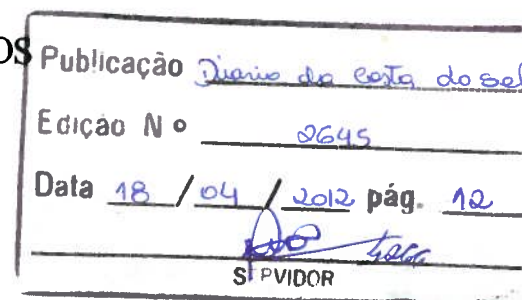 OS
Publicação Diario da Costa do sol
Edição Nº 2645
Data 18 / 04 / 2012 pág. 12
SERVIDOR